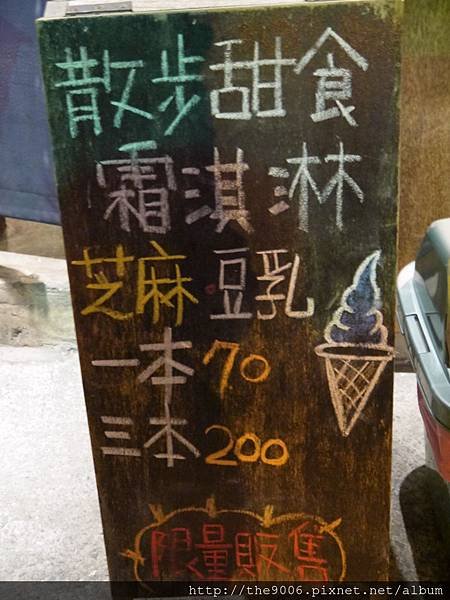 散步甜食
霜淇淋
芝麻．豆乳
一本70
三本200
限量販售
http://the9006.pixnet.net/album